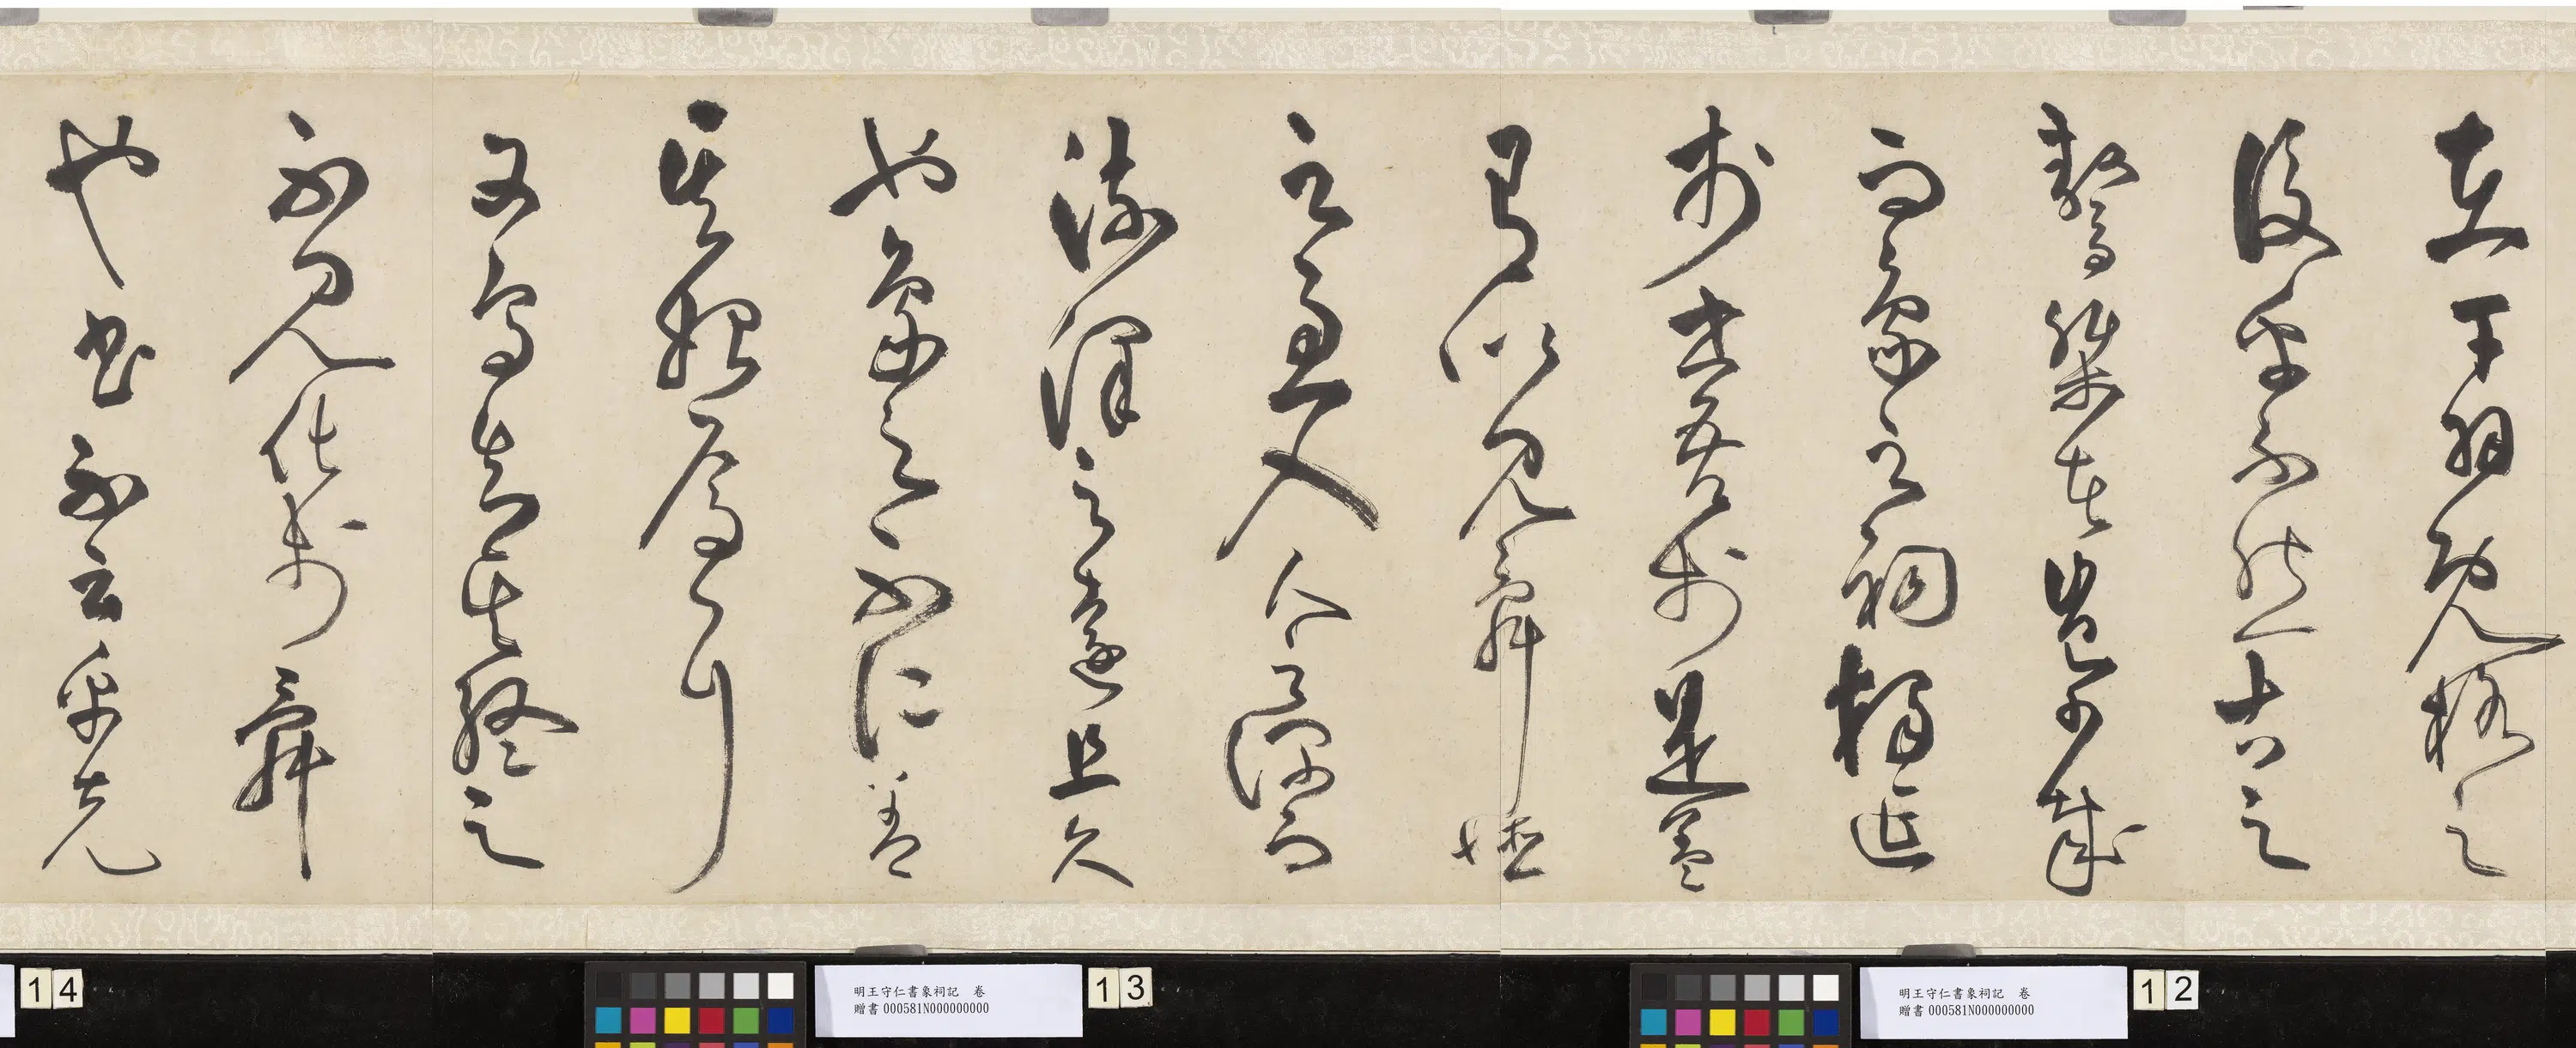 在干羽既格之
後乎不然古之
驁桀者豈少哉
而象之祠獨延
於世吾於是蓋
有以見舜德
之至入人之深而
流澤之遠且久
也象之不仁蓋
其始焉耳
又烏知其終之
不見化於舜
也書不云乎克
12
明王守仁書象祠記 卷
贈書 000581N000000000
13
明王守仁書象祠記 卷
贈書 000581N000000000
14